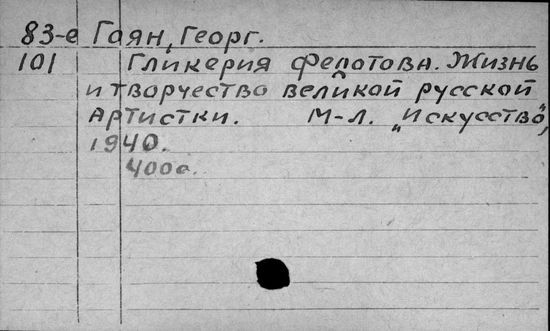 83-е Гаян, Георг.
101 Гликерия Федотова. Жизнь
и творчество великой русской
Артистки. М-Л. „Искусство",
1940.
400с.